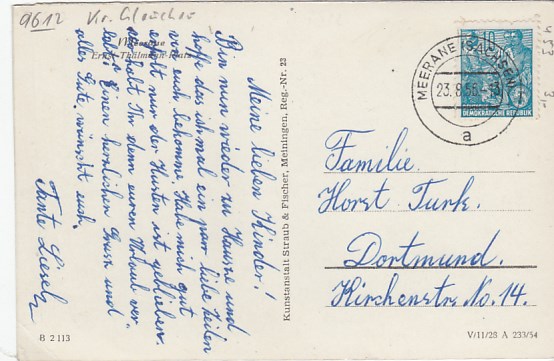 9612 Kr. Glauchau
Meerane
Ernst-Thälmann-Platz
Meine lieben Kinder!
Bin nun wieder zu Hause und
hoffe das ich mal ein paar liebe Zeilen
von euch bekomme. Habe mich gut
erholt nur der Husten ist geblieben.
Habt Ihr denn euren Urlaub ver
lebt. Einen herzlichen Gruß und
alles Gute, wünscht euch.
Tante Liesel
Kunstanstalt Straub & Fischer, Meiningen, Reg.-Nr. 23
B 2113
MEERANE (SACHSEN)
23.8.56-13
a
10
DEUTSCHE
DEMOKRATISCHE REPUBLIK
Familie
Horst Turk.
Dortmund.
Kirchenstr. No. 14.
V/11/28 A 233/54